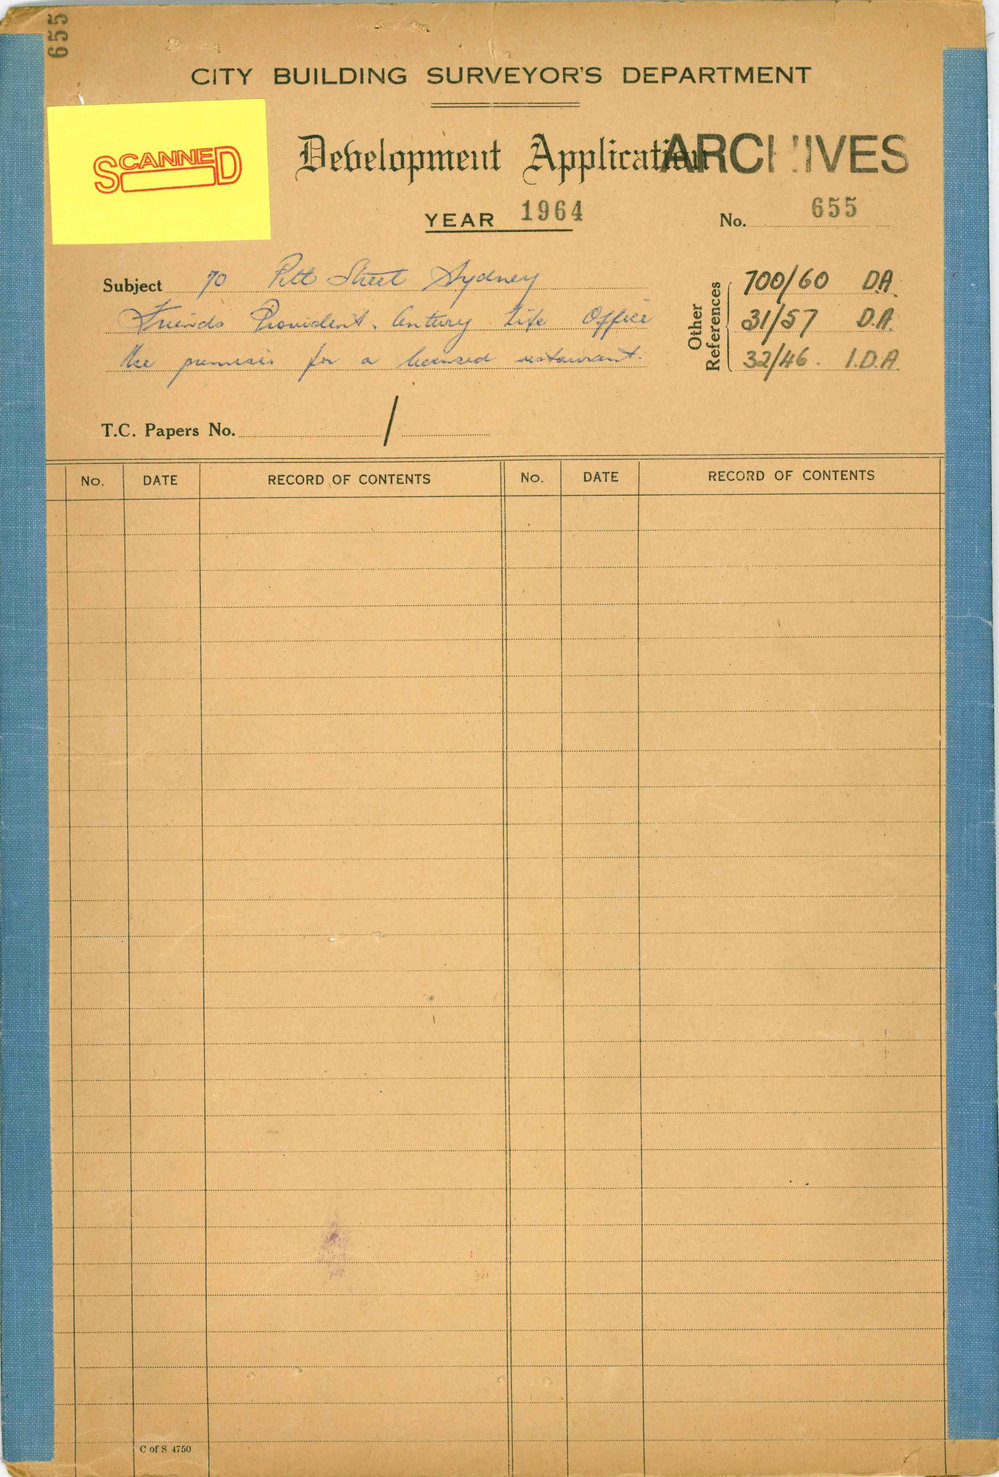 655
CITY BUILDING SURVEYOR'S DEPARTMENT
SCANNED
Development Application
ARCHIVES
YEAR 1964
No. 655
Subject 70 Pitt Street Sydney
Friends Provident. Century Life Office
Use premises for a licensed restaurant.
Other References
700/60 DA
31/57 D.A.
32/46. I.D.A.
T.C. Papers No. /
No. DATE RECORD OF CONTENTS No. DATE RECORD OF CONTENTS
C of S 4750